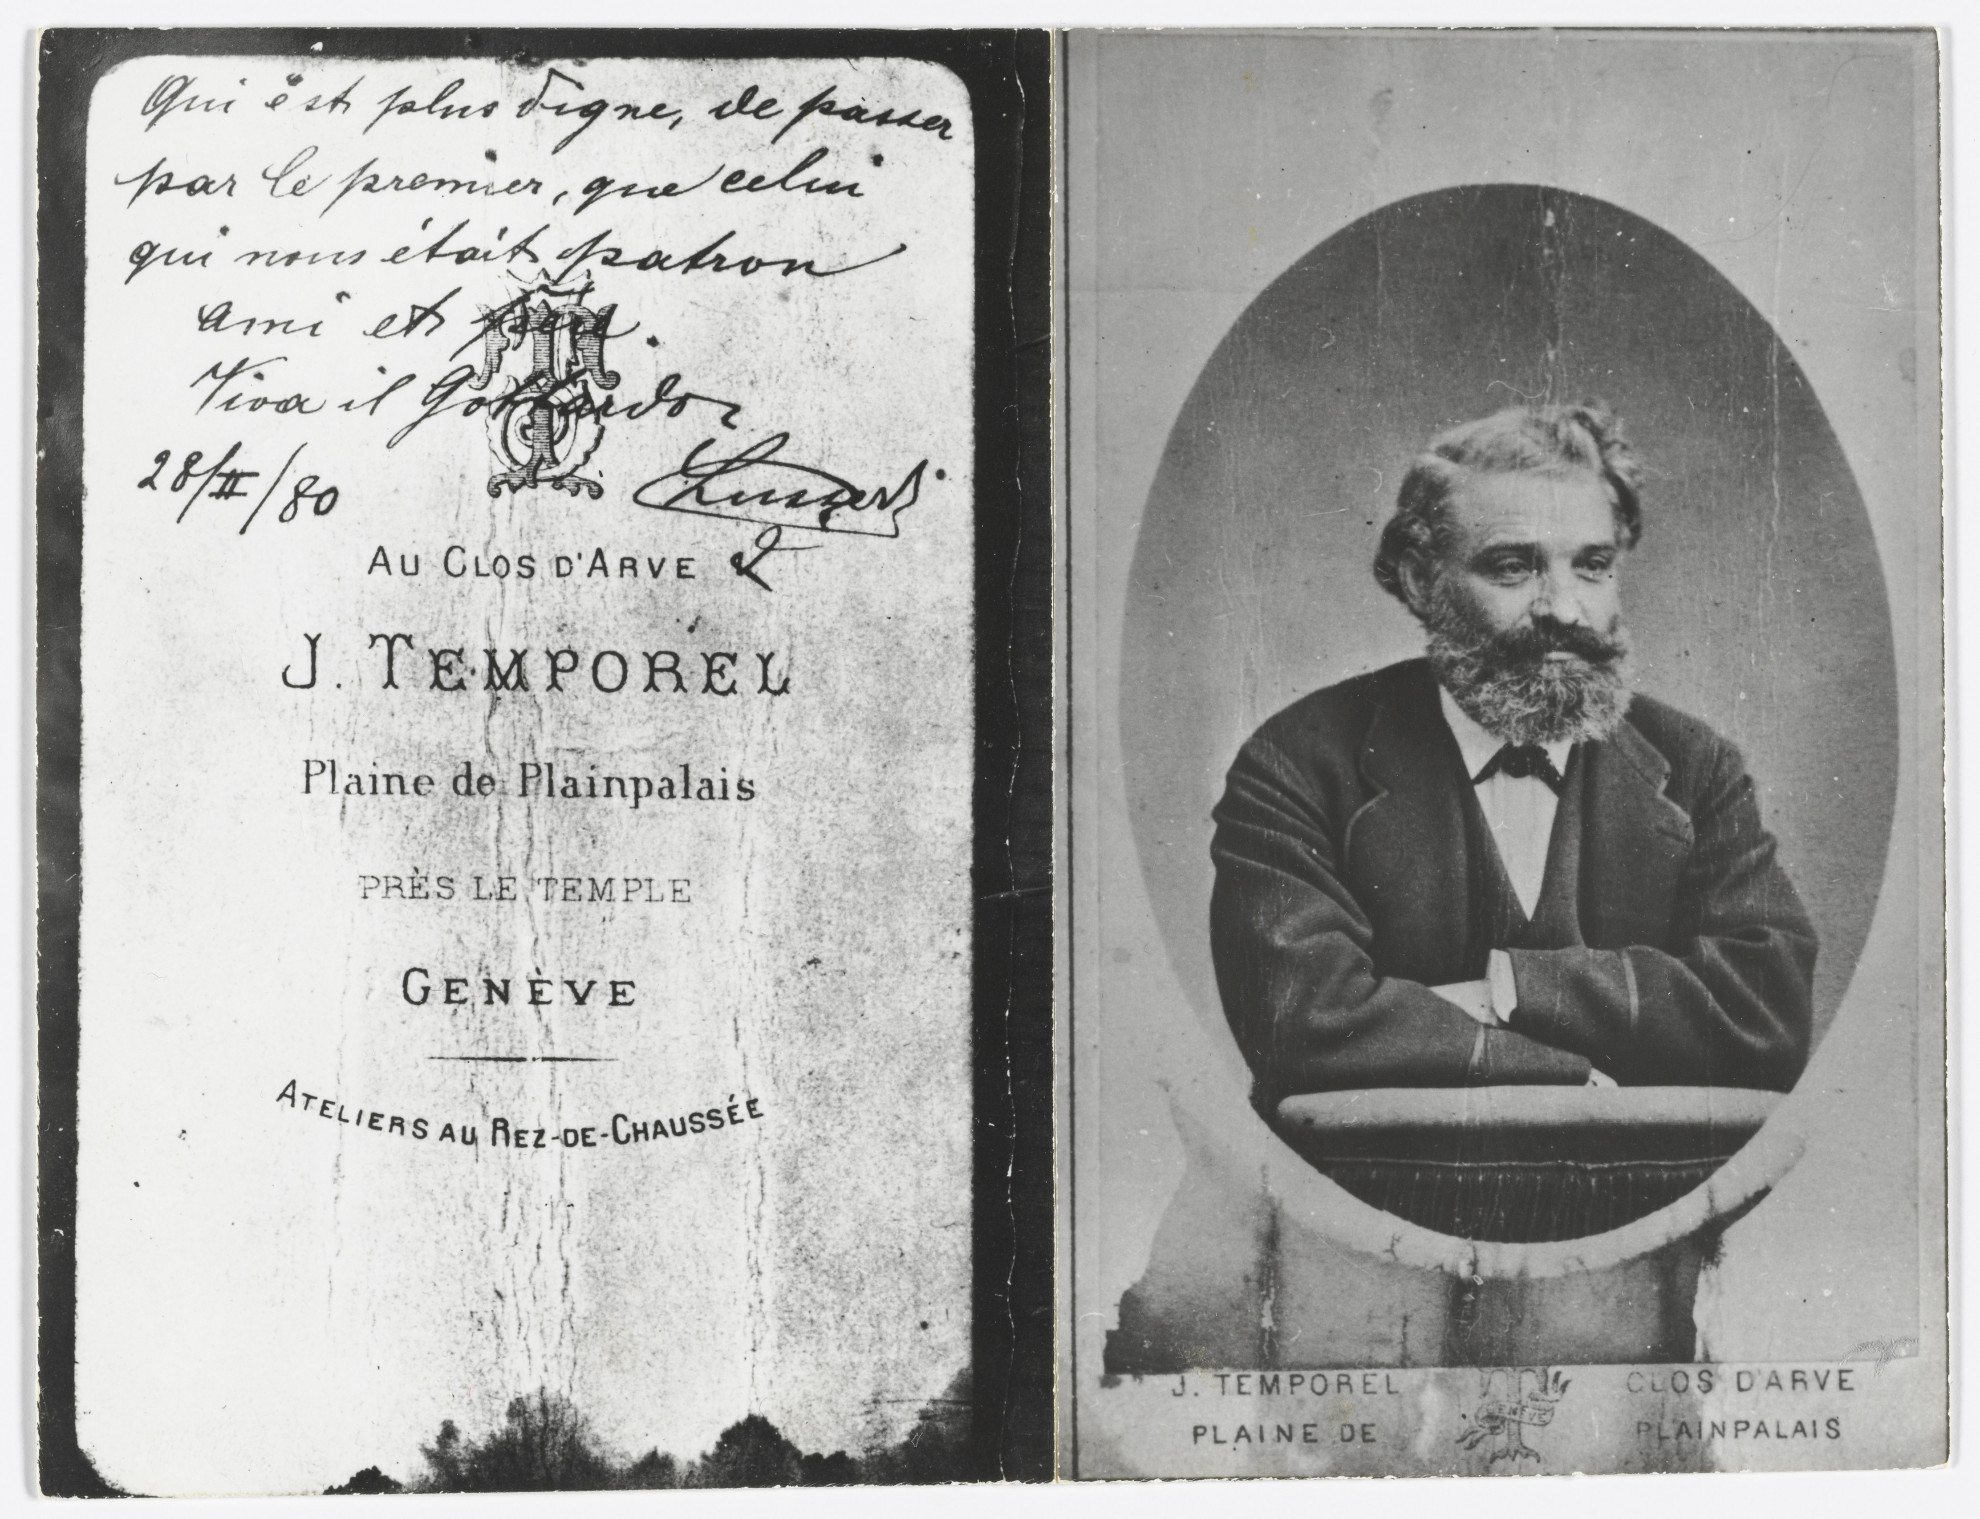 Qui est plus digne, de passer
par le premier, que celui
qui nous était patron
ami et père.
Viva il Gottardo
28/II/80
AU CLOS D'ARVE
J. TEMPOREL
Plaine de Plainpalais
PRÈS LE TEMPLE
GENÈVE
ATELIERS AU REZ-DE-CHAUSSÉE
J. TEMPOREL
CLOS D'ARVE
GENÈVE
PLAINE DE
PLAINPALAIS